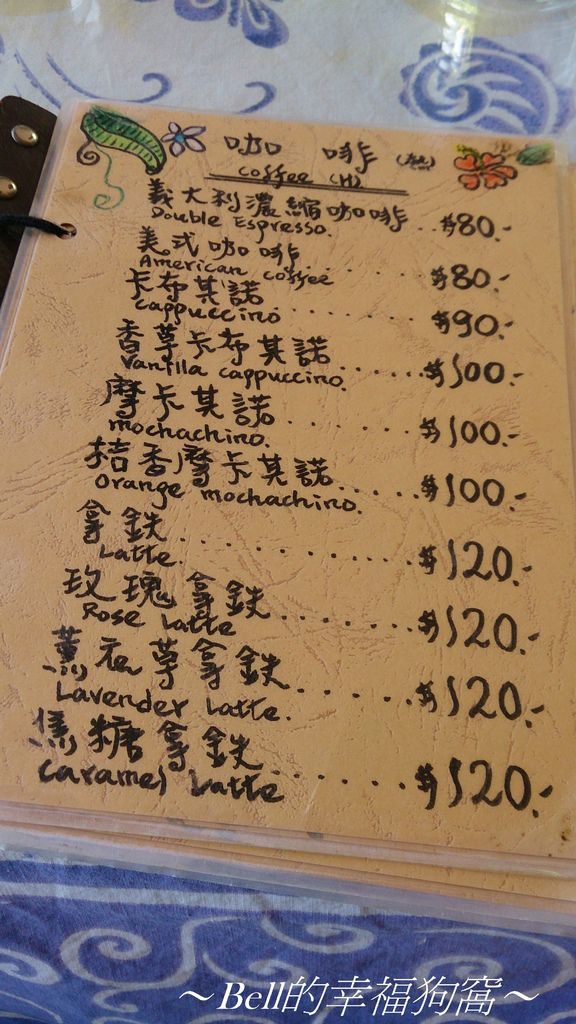 咖啡(熱)
coffee (H)
義大利濃縮咖啡..$80.-
Double Espresso.
美式咖啡......$80.-
American coffee
卡布其諾......$90.-
cappuccino
香草卡布其諾.....$100.-
Vanilla cappuccino.
摩卡其諾.......$100.-
mochachino.
桔香摩卡其諾.....$100.-
Orange mochachino.
拿鉄..........$120.-
Latte.
玫瑰拿鉄.......$120.-
Rose Latte
薰衣草拿鉄......$120.-
Lavender Latte.
焦糖拿鉄......$120.-
caramel Latte
～Bell的幸福狗窩～